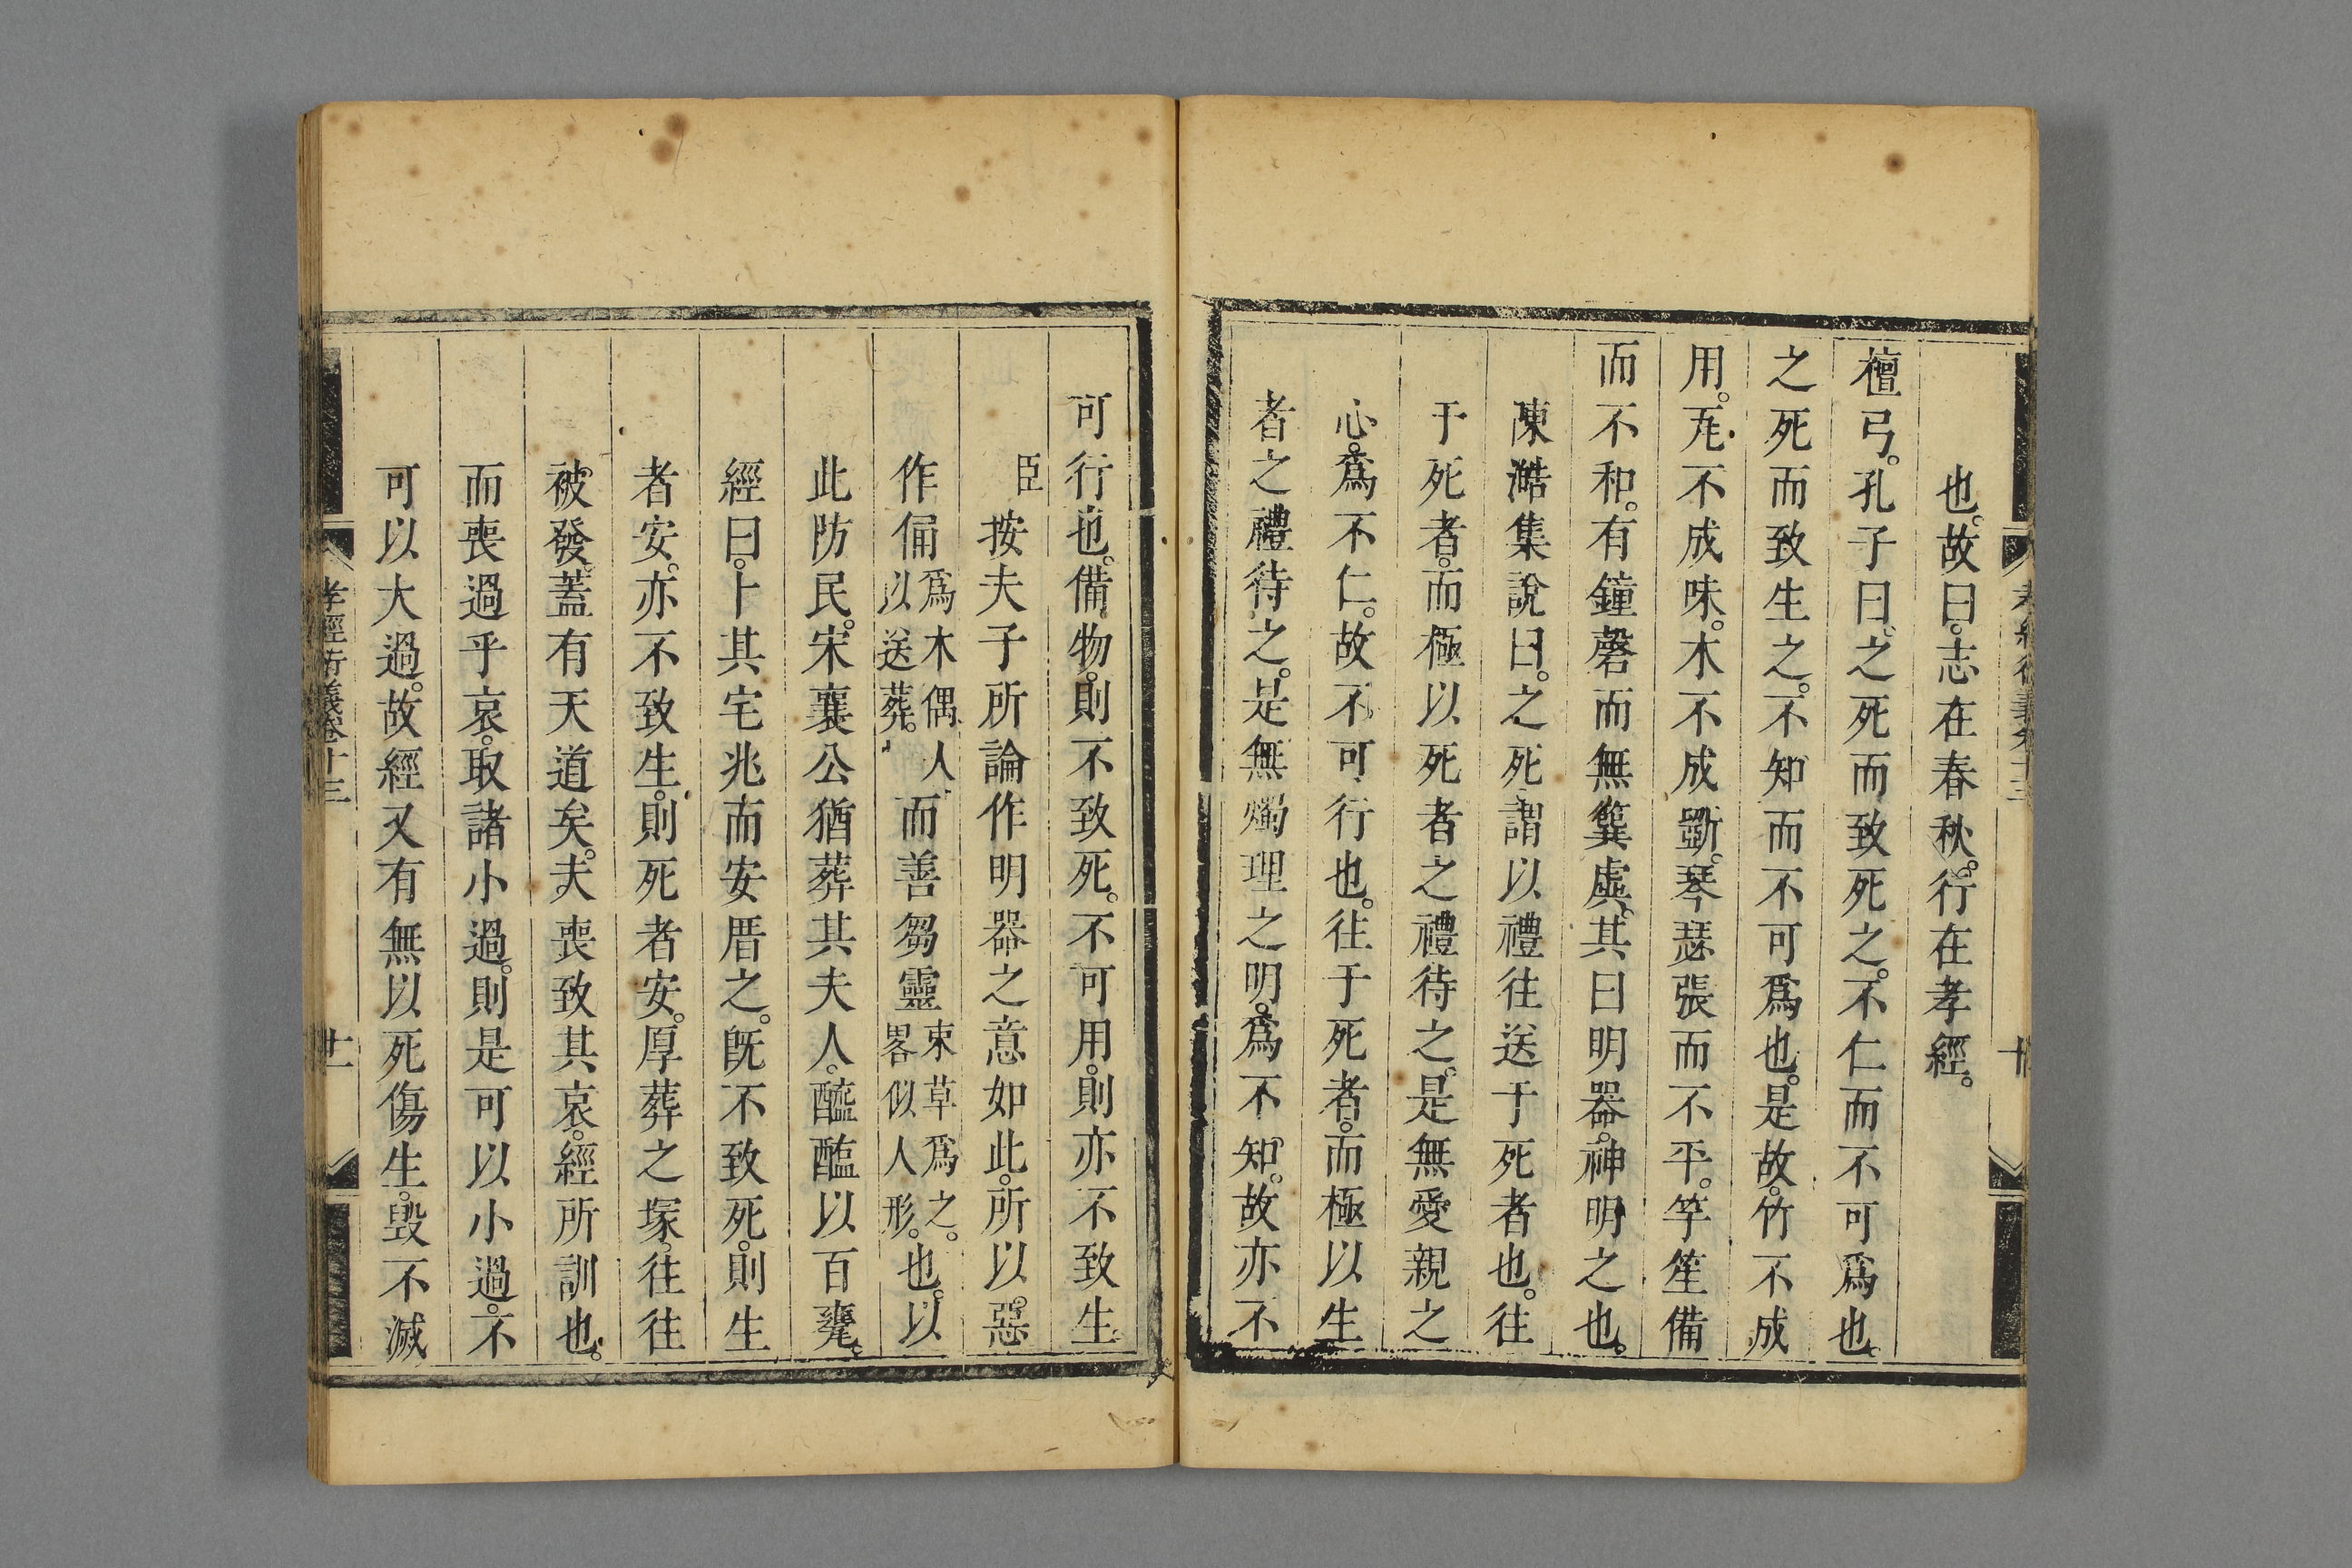 也。故曰。志在春秋。行在孝經。
檀弓。孔子曰。之死而致死之。不仁而不可爲也。
之死而致生之。不知而不可爲也。是故。竹不成
用。瓦不成味。木不成斲。琴瑟張而不平。竽笙備
而不和。有鐘磬而無簨虡。其曰明器。神明之也。
陳澔集說曰。之死謂以禮往送于死者也。往
于死者。而極以死者之禮待之。是無愛親之
心。爲不仁。故不可行也。往于死者。而極以生
者之禮待之。是無燭理之明。爲不知。故亦不
可行也。備物。則不致死。不可用。則亦不致生
臣按夫子所論作明器之意如此。所以。惡
作俑爲木偶人以送葬。而善芻靈束草爲之。畧似人形。也。以
此防民。宋襄公猶葬其夫人。醯醢以百甕。
經曰。卜其宅兆而安厝之。旣不致死。則生
者安。亦不致生。則死者安。厚葬之塚。往往
被發。蓋有天道矣。夫喪致其哀。經所訓也。
而喪過乎哀。取諸小過。則是可以小過。不
可以大過。故經又有無以死傷生。毀不滅
孝經衍義卷十三